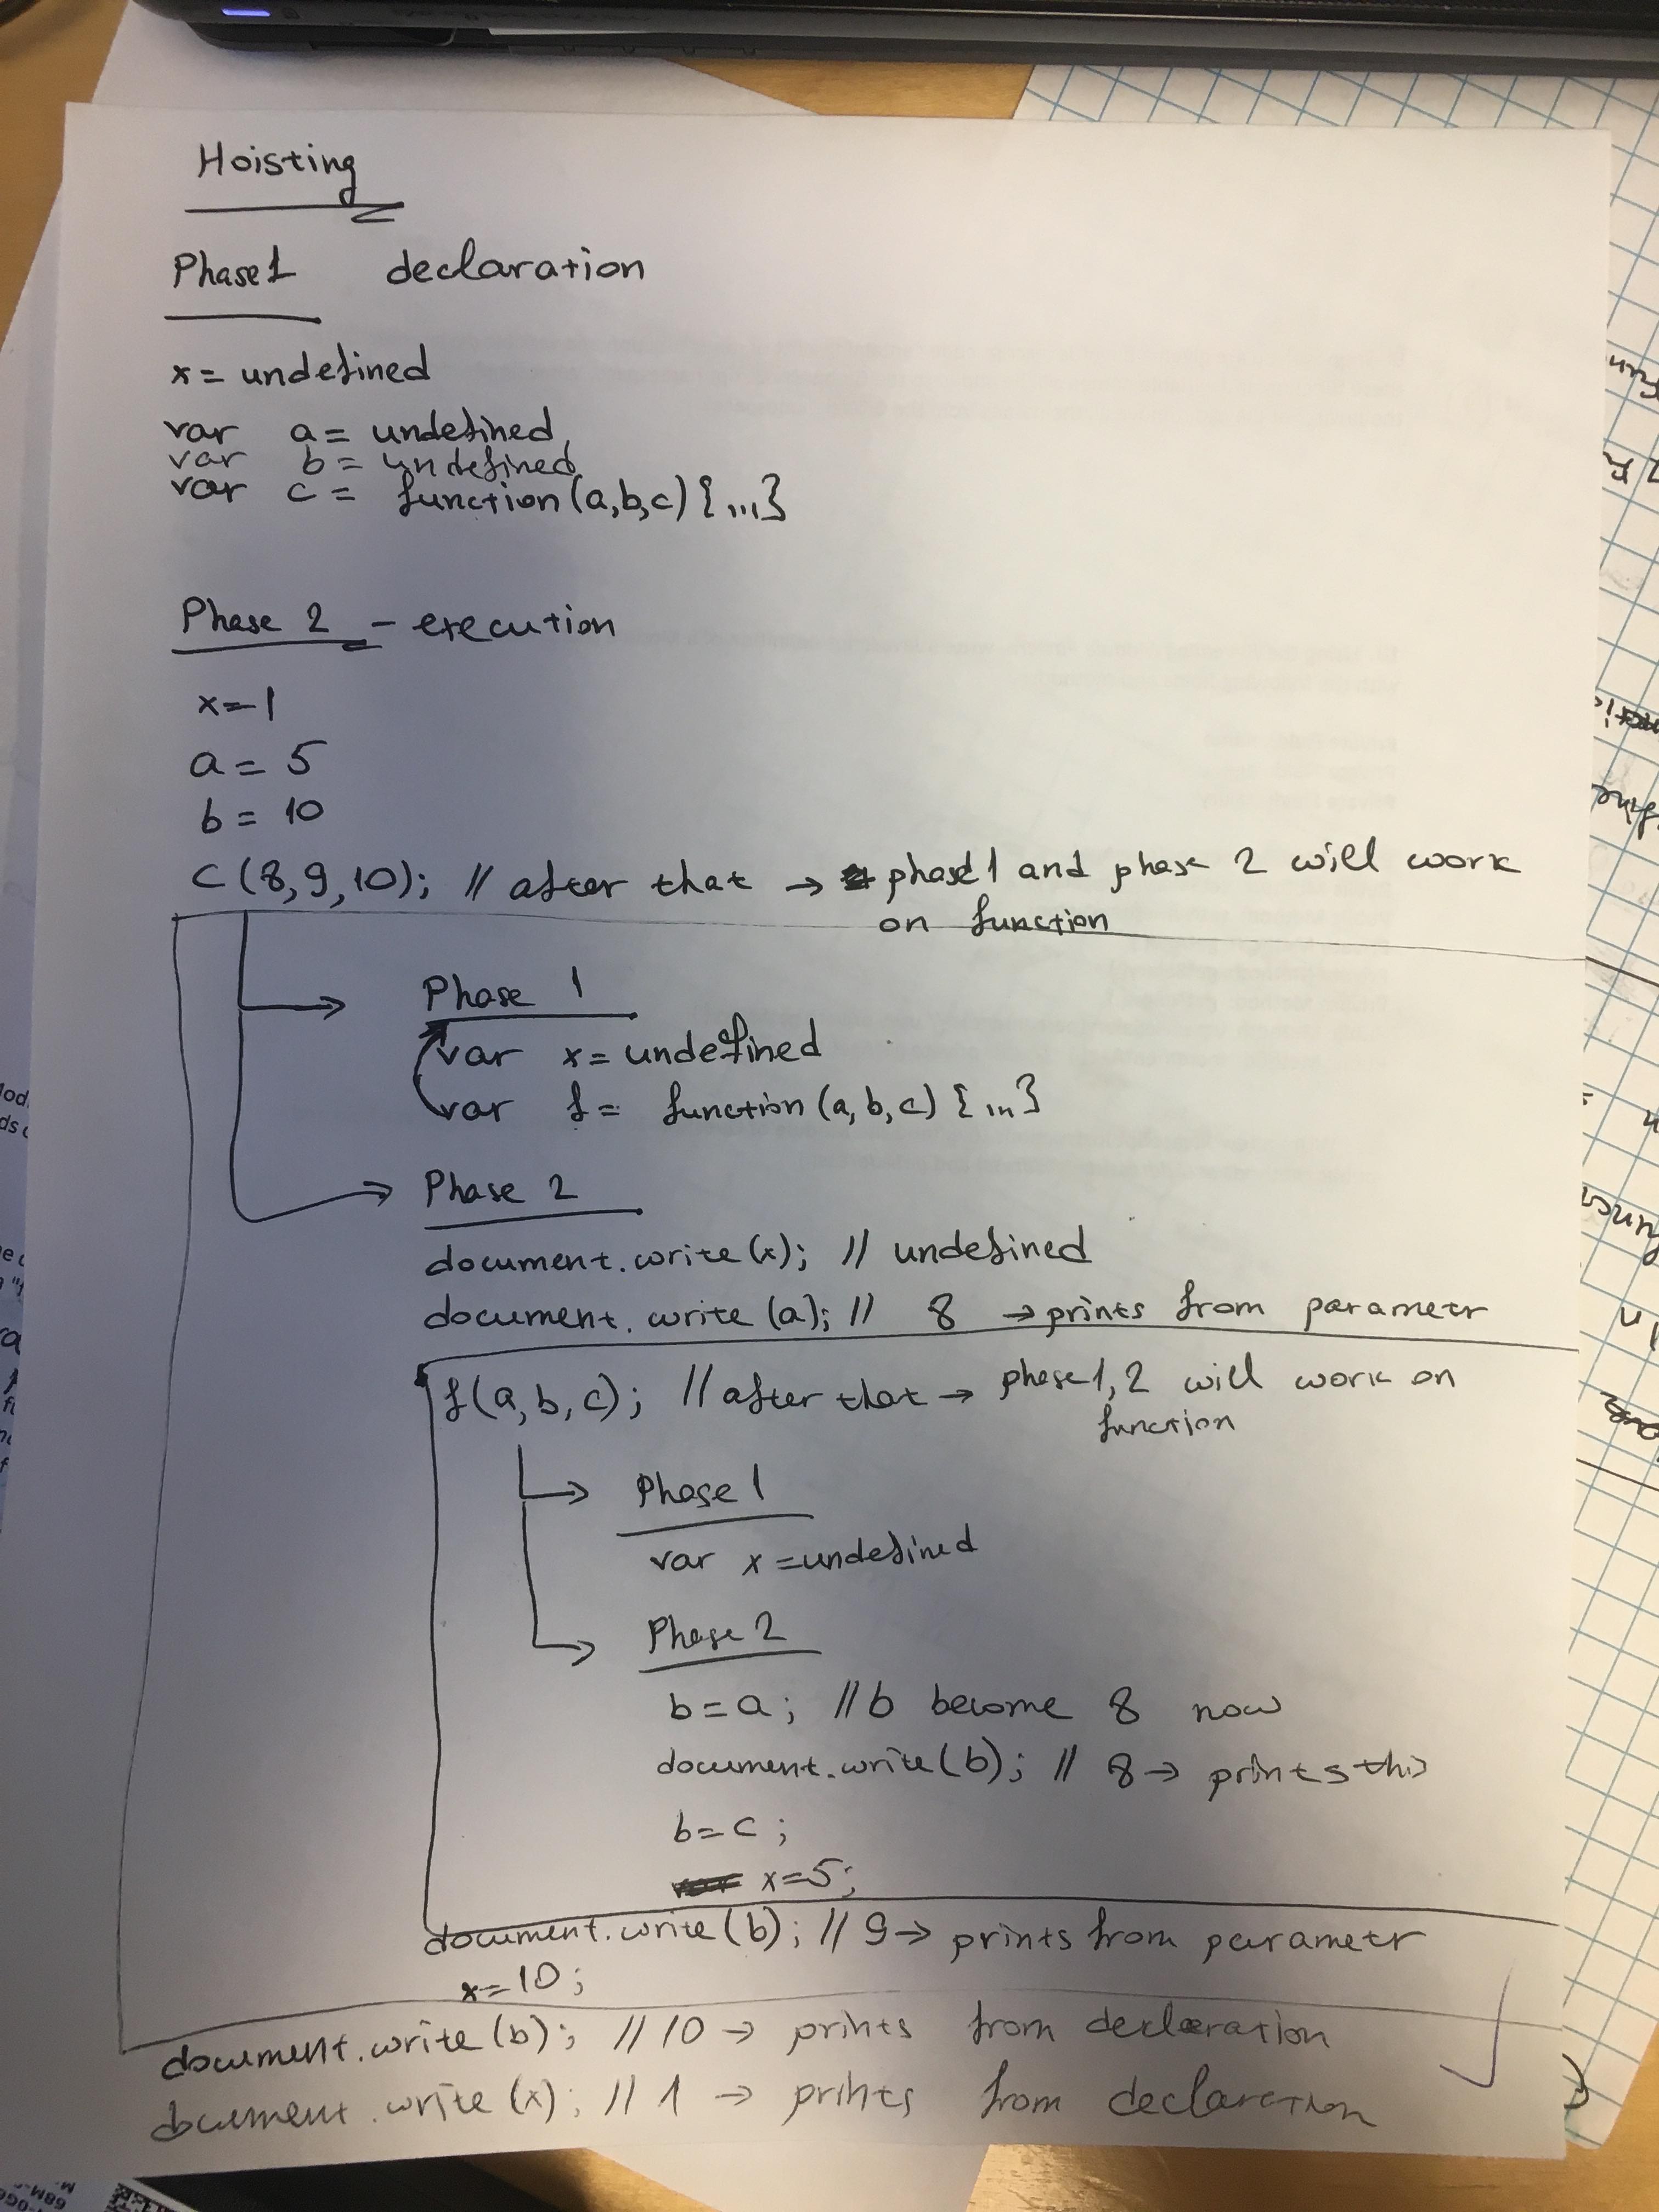 Hoisting
Phase 1 declaration
x = undefined
var a = undefined,
var b = undefined,
var c = function(a,b,c) {...}
Phase 2 - execution
x=1
a = 5
b = 10
C(8,9,10); // after that → phase 1 and phase 2 will work
on function
Phase 1
var x = undefined
var f = function(a,b,c) {...}
Phase 2
document.write(x); // undefined
document.write(a); // 8 → prints from parametr
f(a,b,c); // after that → phase 1,2 will work on
function
Phase 1
var x = undefined
Phase 2
b=a; // b become 8 now
document.write(b); // 8 → prints this
b=c;
x=5;
document.write(b); // 9 → prints from parametr
x=10;
document.write(b); // 10 → prints from declaration
document.write(x); // 1 → prints from declaration